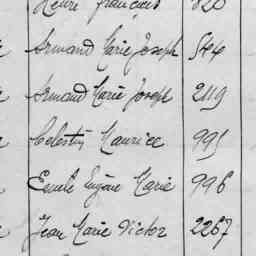 Henri François 820
Armand Marie Joseph 544
Armand Marie Joseph 2119
Celestin Maurice 995
Emile Eugène Marie 996
Jean Marie Victor 2267